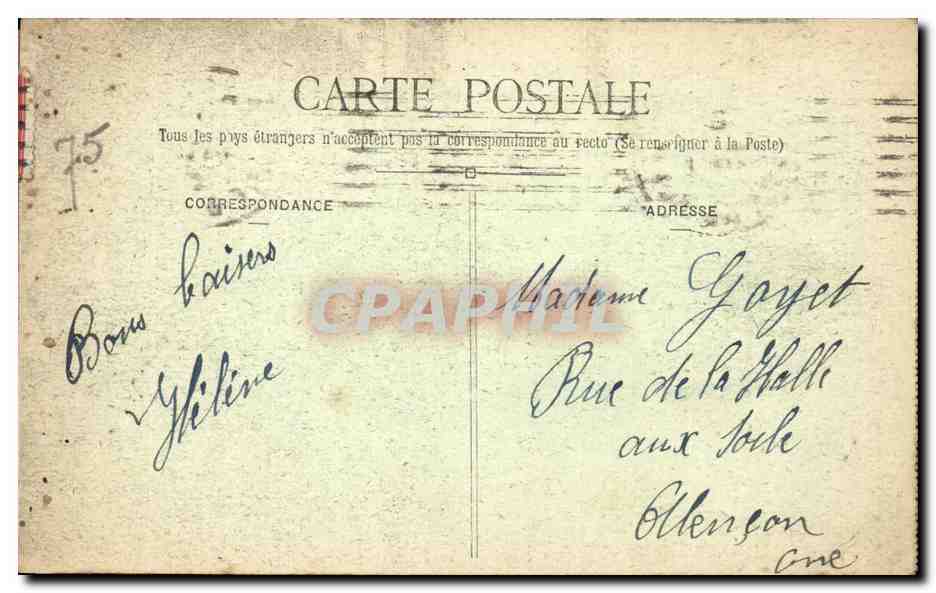 CARTE POSTALE
Tous les pays étrangers n'acceptent pas la correspondance au recto (Se renseigner à la Poste)
75
CORRESPONDANCE
Bons baisers
Hélène
ADRESSE
Madame Goyet
Rue de la Halle
aux Toile
Alençon
Orne
CPAPHIL